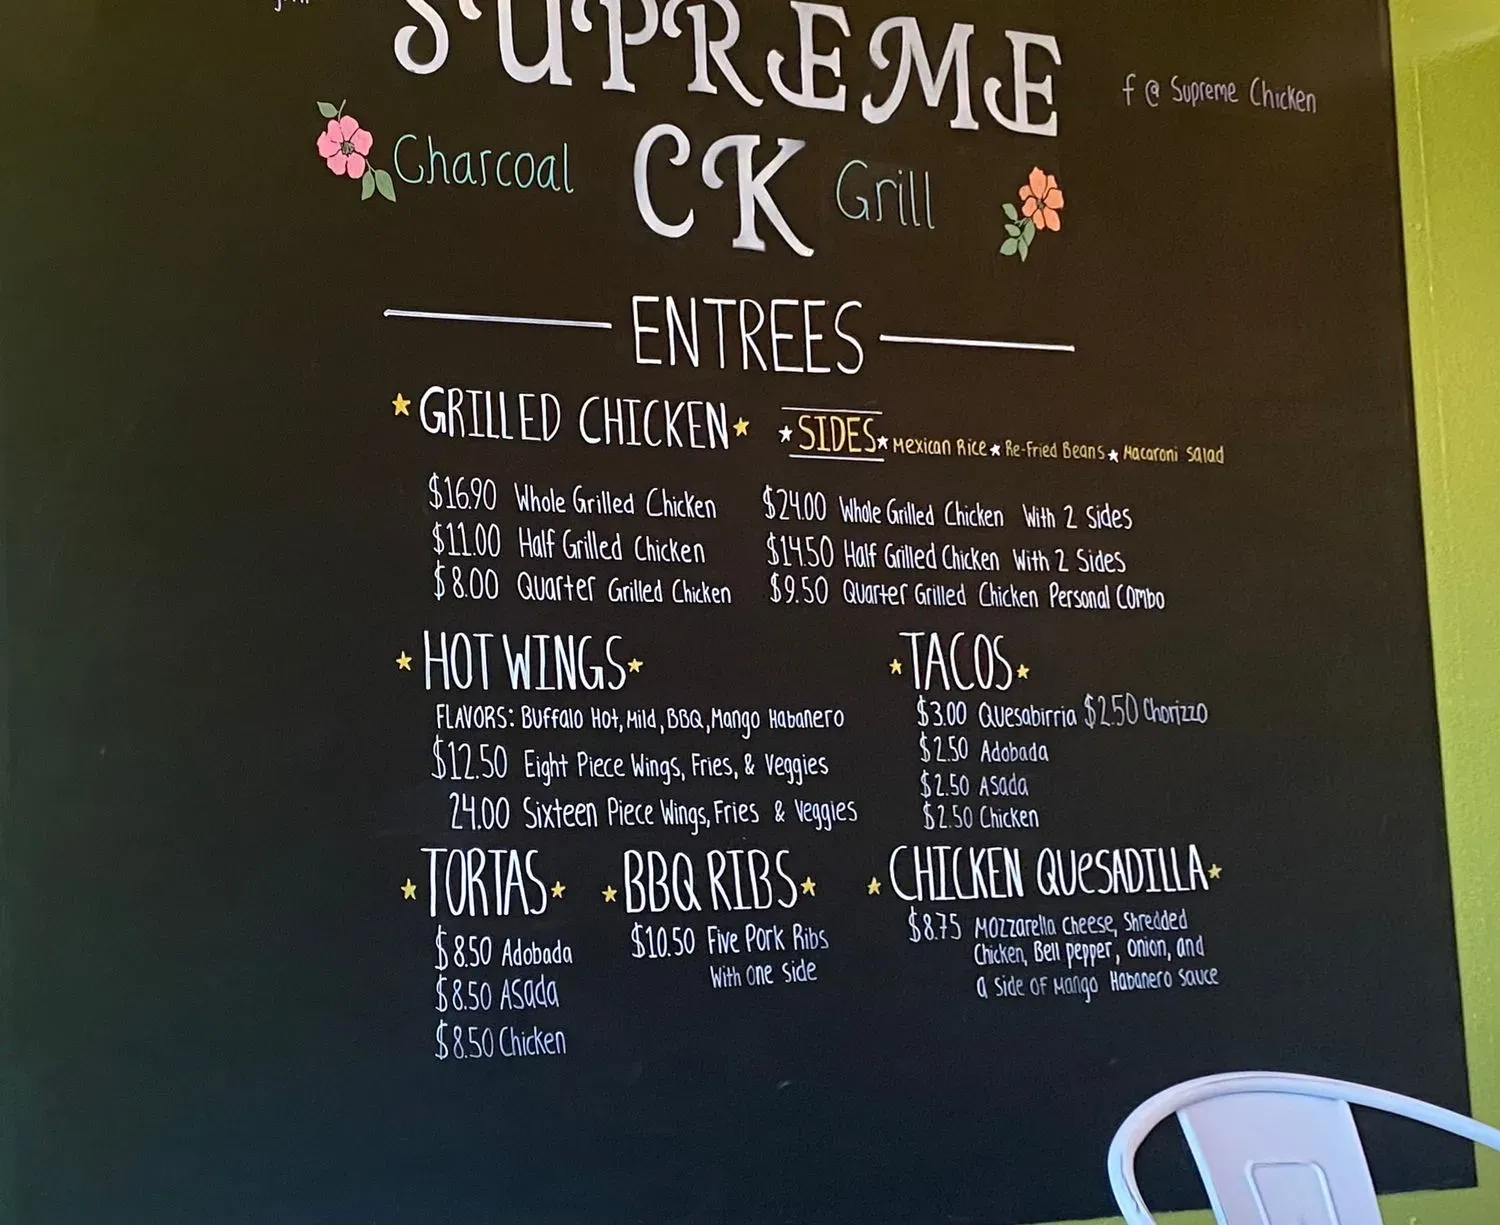 SUPREME
f @ Supreme Chicken
Charcoal CK Grill
ENTREES
GRILLED CHICKEN
SIDES Mexican Rice Re-Fried Beans Macaroni Salad
$16.90 Whole Grilled Chicken
$11.00 Half Grilled Chicken
$8.00 Quarter Grilled Chicken
$24.00 Whole Grilled Chicken With 2 Sides
$14.50 Half Grilled Chicken With 2 Sides
$9.50 Quarter Grilled Chicken Personal Combo
HOT WINGS
FLAVORS: Buffalo Hot, Mild, BBQ, Mango Habanero
$12.50 Eight Piece Wings, Fries, & Veggies
24.00 Sixteen Piece Wings, Fries & Veggies
TACOS
$3.00 Quesabirria $2.50 Chorizzo
$2.50 Adobada
$2.50 Asada
$2.50 Chicken
TORTAS
$8.50 Adobada
$8.50 Asada
$8.50 Chicken
BBQ RIBS
$10.50 Five Pork Ribs
With one Side
CHICKEN QUESADILLA
$8.75 Mozzarella Cheese, Shredded
Chicken, Bell pepper, onion, and
a side of Mango Habanero sauce